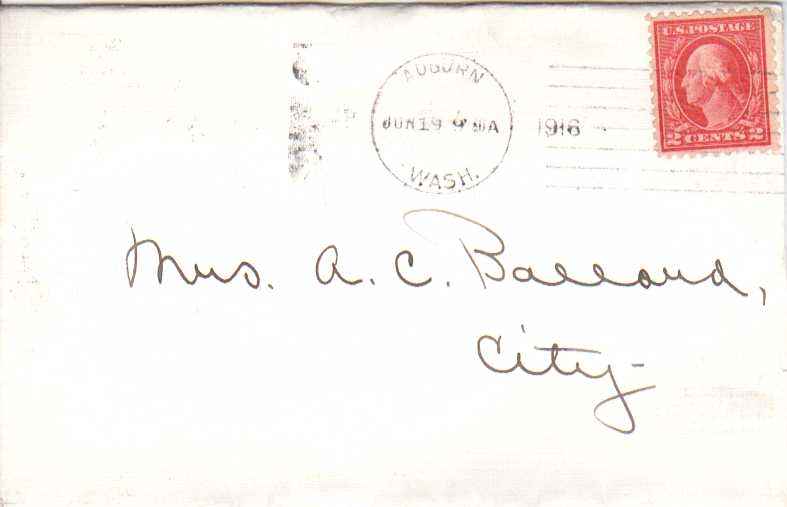 U.S. POSTAGE
2 CENTS 2
AUBURN
JUN 19 9 30A
1916
WASH.
Mrs. A. C. Ballard,
City-